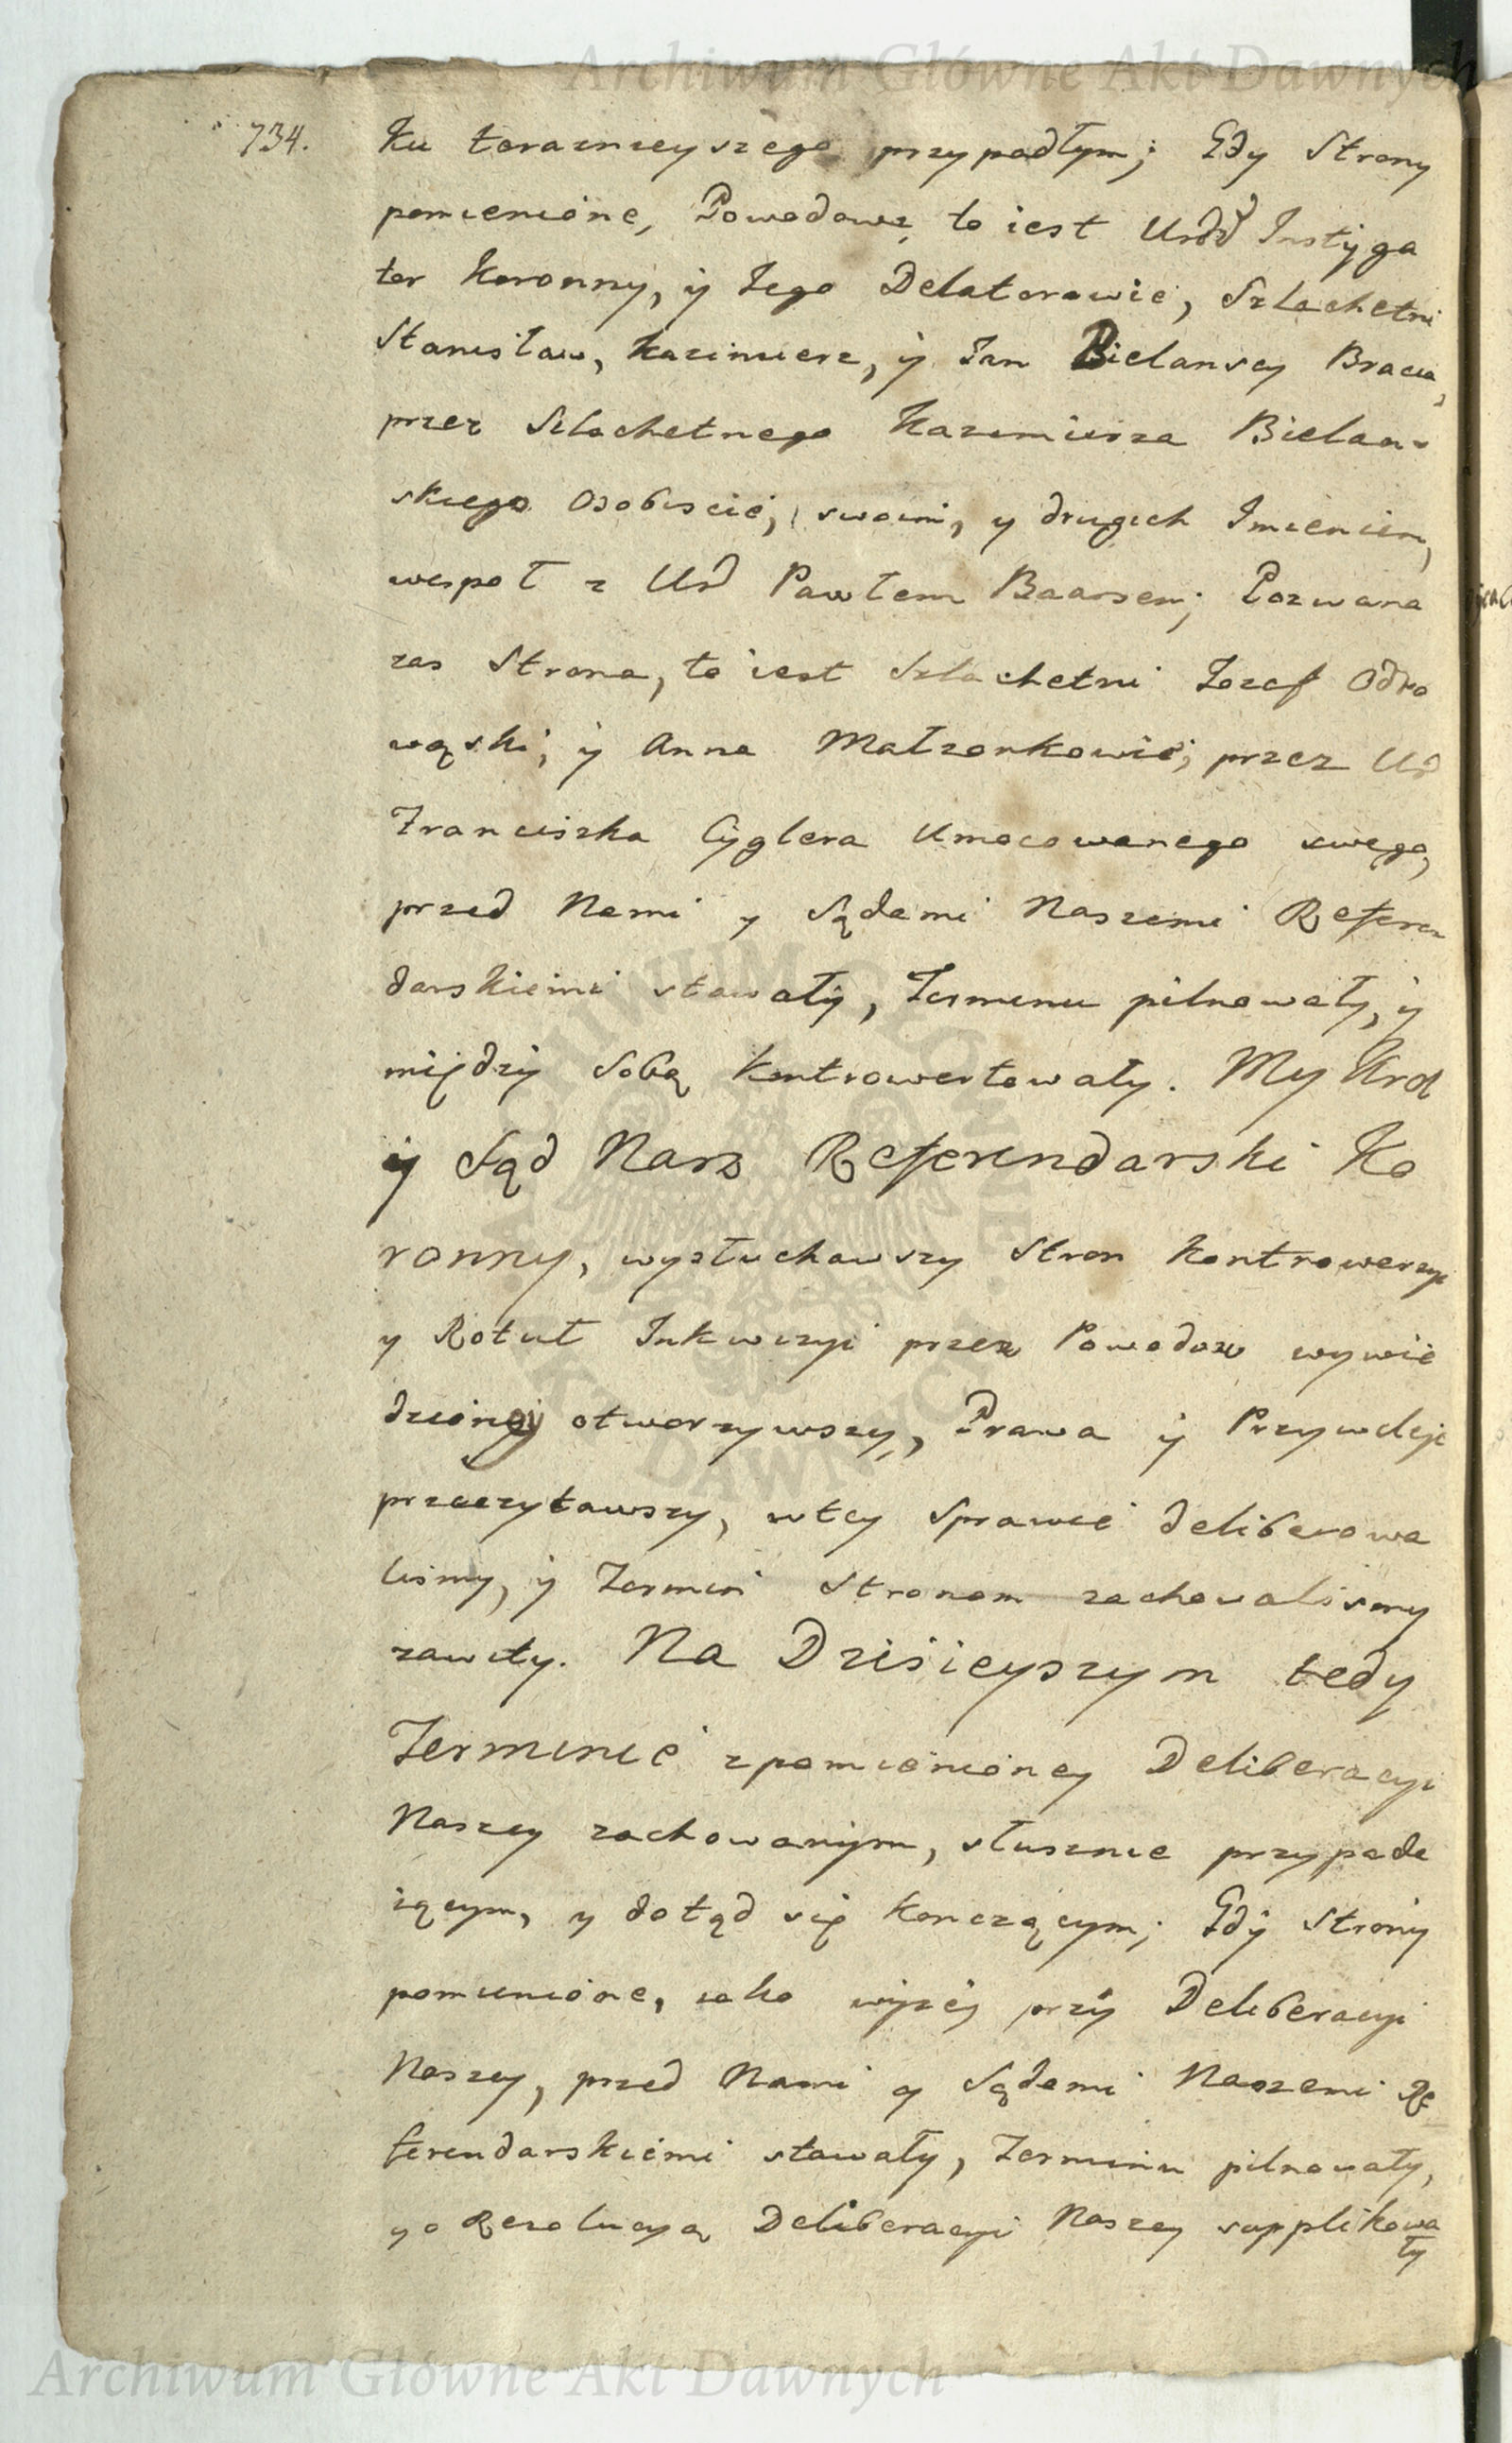 Archiwum Główne Akt Dawnych
734.
Ku teraznieyszego przypadłym; Gdy Strony
pomienione, Powodowie to iest Urodd Instyga
tor Koronny, y Jego Delatorowie, Szlachetni
Stanisław, Kazimierz, y Jan Bielanscy Bracia,
przez Szlachetnego Kazimierza Bielan-
skiego Osobiscie, swoim, y drugich Imieniem,
wespoł z Ur Pawłem Baarsem; Pozwana
zas Strona, to iest Szlachetni Jozef Odro
wąski, y Anna Małzonkowie, przez Ur
Franciszka Cyglera Umocowanego swego,
przed Nami y Sądami Naszemi Referen
darskiemi stawały, Terminu pilnowały, y
między sobą kontrowertowały. My Krol
y Sąd Nasz Referendarski Ko
ronny, wysłuchawszy Stron Kontrowersyi
y Rotuł Inkwizyi przez Powodow wywie
dzioney otworzywszy, Prawa y Przywileje
przeczytawszy, wtey Sprawie deliberowa
lismy, y Termin Stronom zachowalismy
zawity. Na Dzisieyszym tedy
Terminie zpomienioney Deliberacyi
Naszey zachowanym, słusznie przypada
iącym, y dotąd się kończącym; Gdy Strony
pomienione, iako wyżey przy Deliberacyi
Naszey, przed Nami y Sądami Naszemi Re
ferendarskiemi stawały, Terminu pilnowały,
y o Rezolucyą Deliberacyi Naszey supplikowa
ły
ARCHIWUM GŁÓWNE AKT DAWNYCH
Archiwum Główne Akt Dawnych